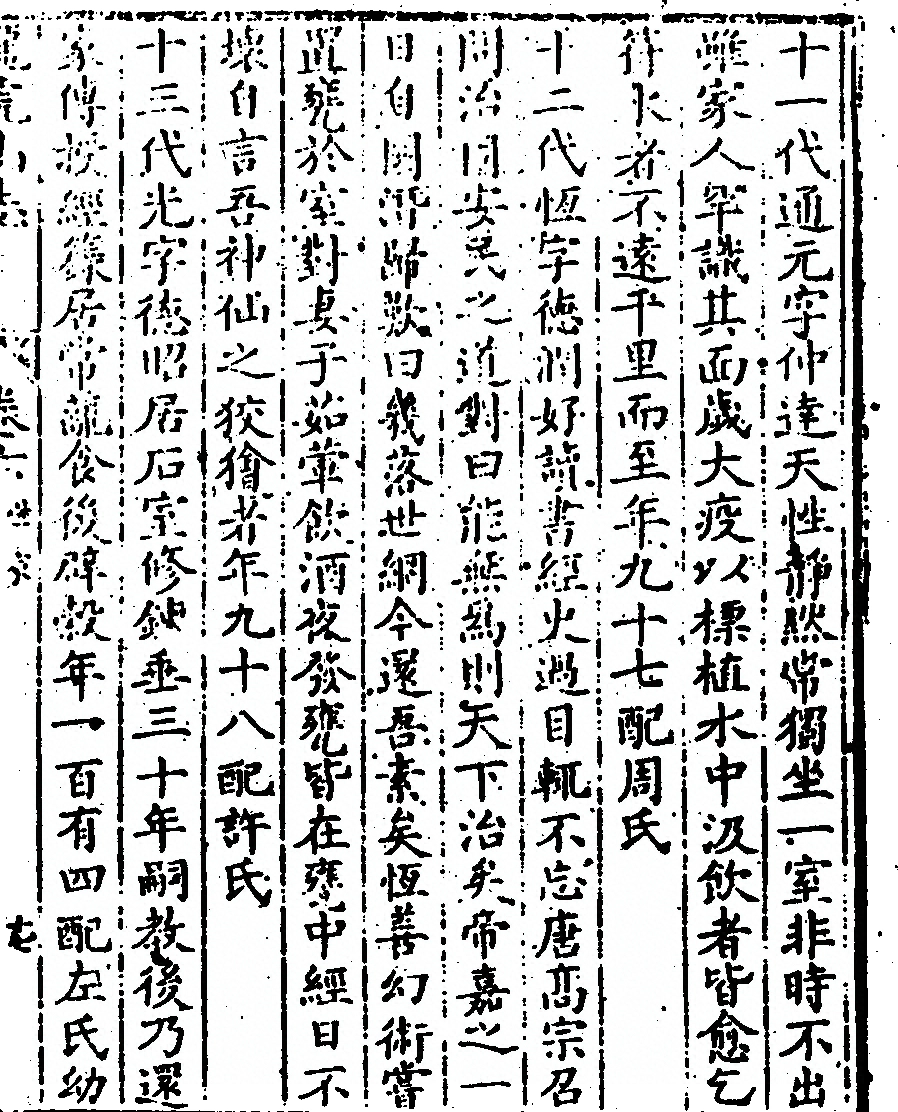 十一代通元字仲達天性靜默常獨坐一室非時不出
雖家人罕識其面歲大疫以標植水中汲飲者皆愈乞
符水者不遠千里而至年九十七配周氏
十二代恆字德潤好讀書經火過目輒不忘唐高宗召
問治國安民之道對曰能無為則天下治矣帝嘉之一
日自國潛歸歎曰幾落世網今還吾素矣恆善幻術嘗
置甕於室對妻子茹葷飲酒夜發甕皆在甕中經日不
壞自言吾神仙之狡獪者年九十八配許氏
十三代光字德昭居石室修鍊垂三十年嗣教後乃還
家傳授經籙居常蔬食後辟穀年一百有四配左氏幼
龍虎山志 卷六 世家